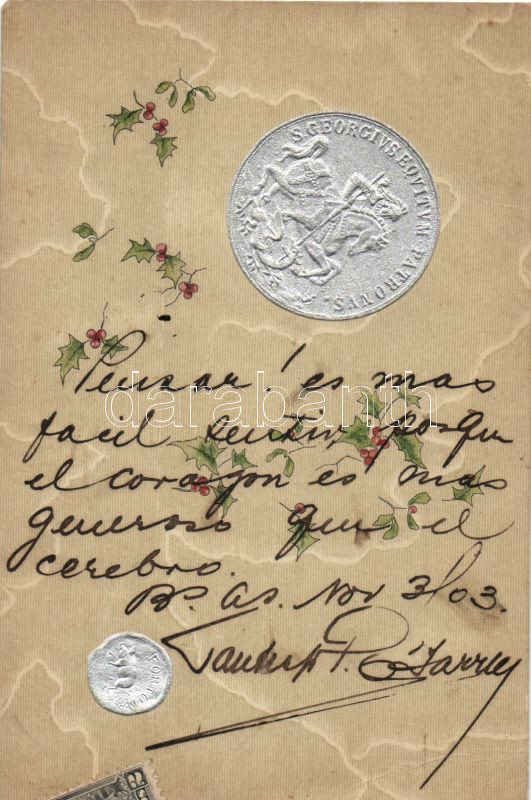 S. GEORGIVS EQVITVM PATRONVS
Pensar! es mas
facil sentir, porque
el corazon es mas
generoso que el
cerebro.
Bs. As. Nov 3/03.
FORTUNA
darabanth